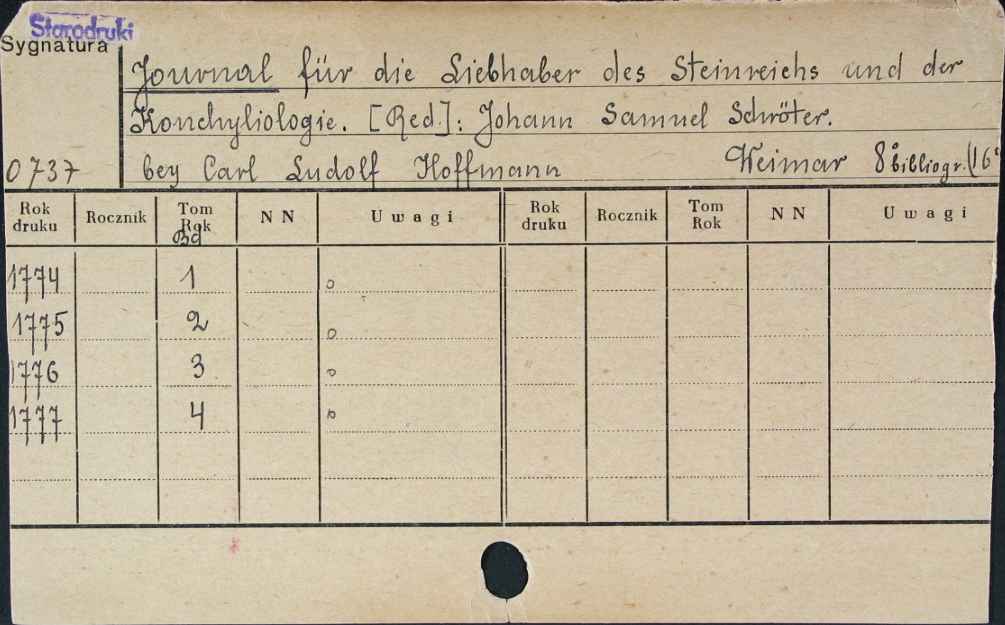 Starodruki
Sygnatura
Journal für die Liebhaber des Steinreichs und der
Konchyliologie. [Red.]: Johann Samuel Schröter.
0737 bey Carl Ludolf Hoffmann Weimar 8° bibliogr. (16°
Rok druku Rocznik Tom Rok Bd NN Uwagi Rok druku Rocznik Tom Rok NN Uwagi
1774 1 o
1775 2 o
1776 3 o
1777 4 o